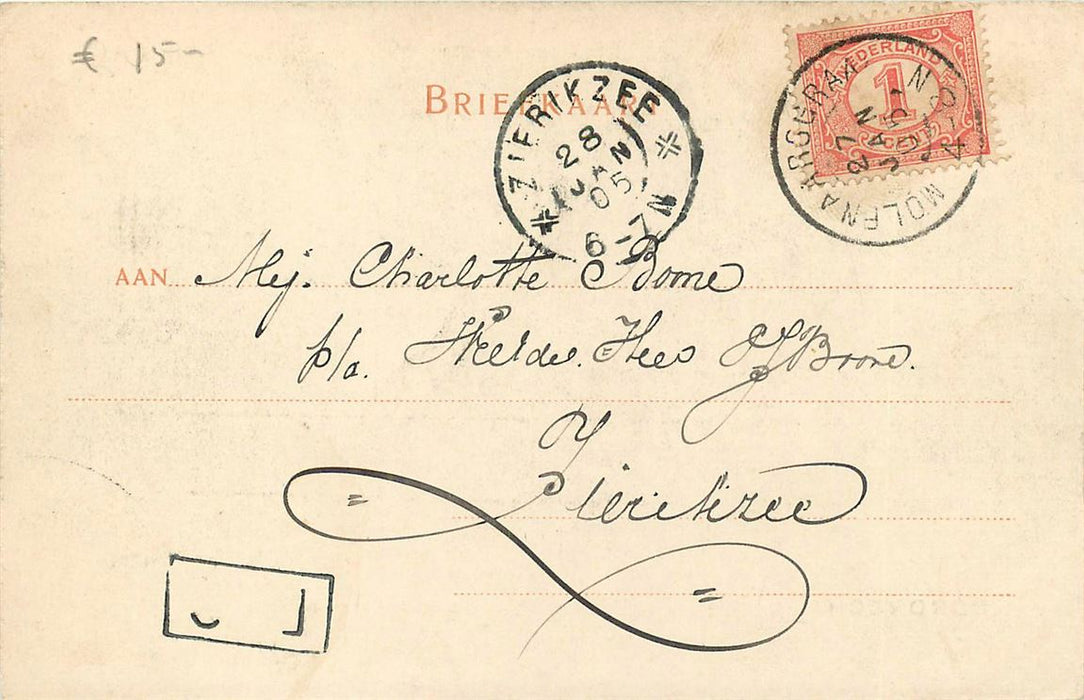 € 15-
BRIEFKAART
NEDERLAND
1
CENT
MOLENAARSGRAAF
27 JAN 05
8-9 N
ZIERIKZEE
28
JAN
05
6-7 N
AAN Mej. Charlotte Boone
p/a. Boone.
Zierikzee